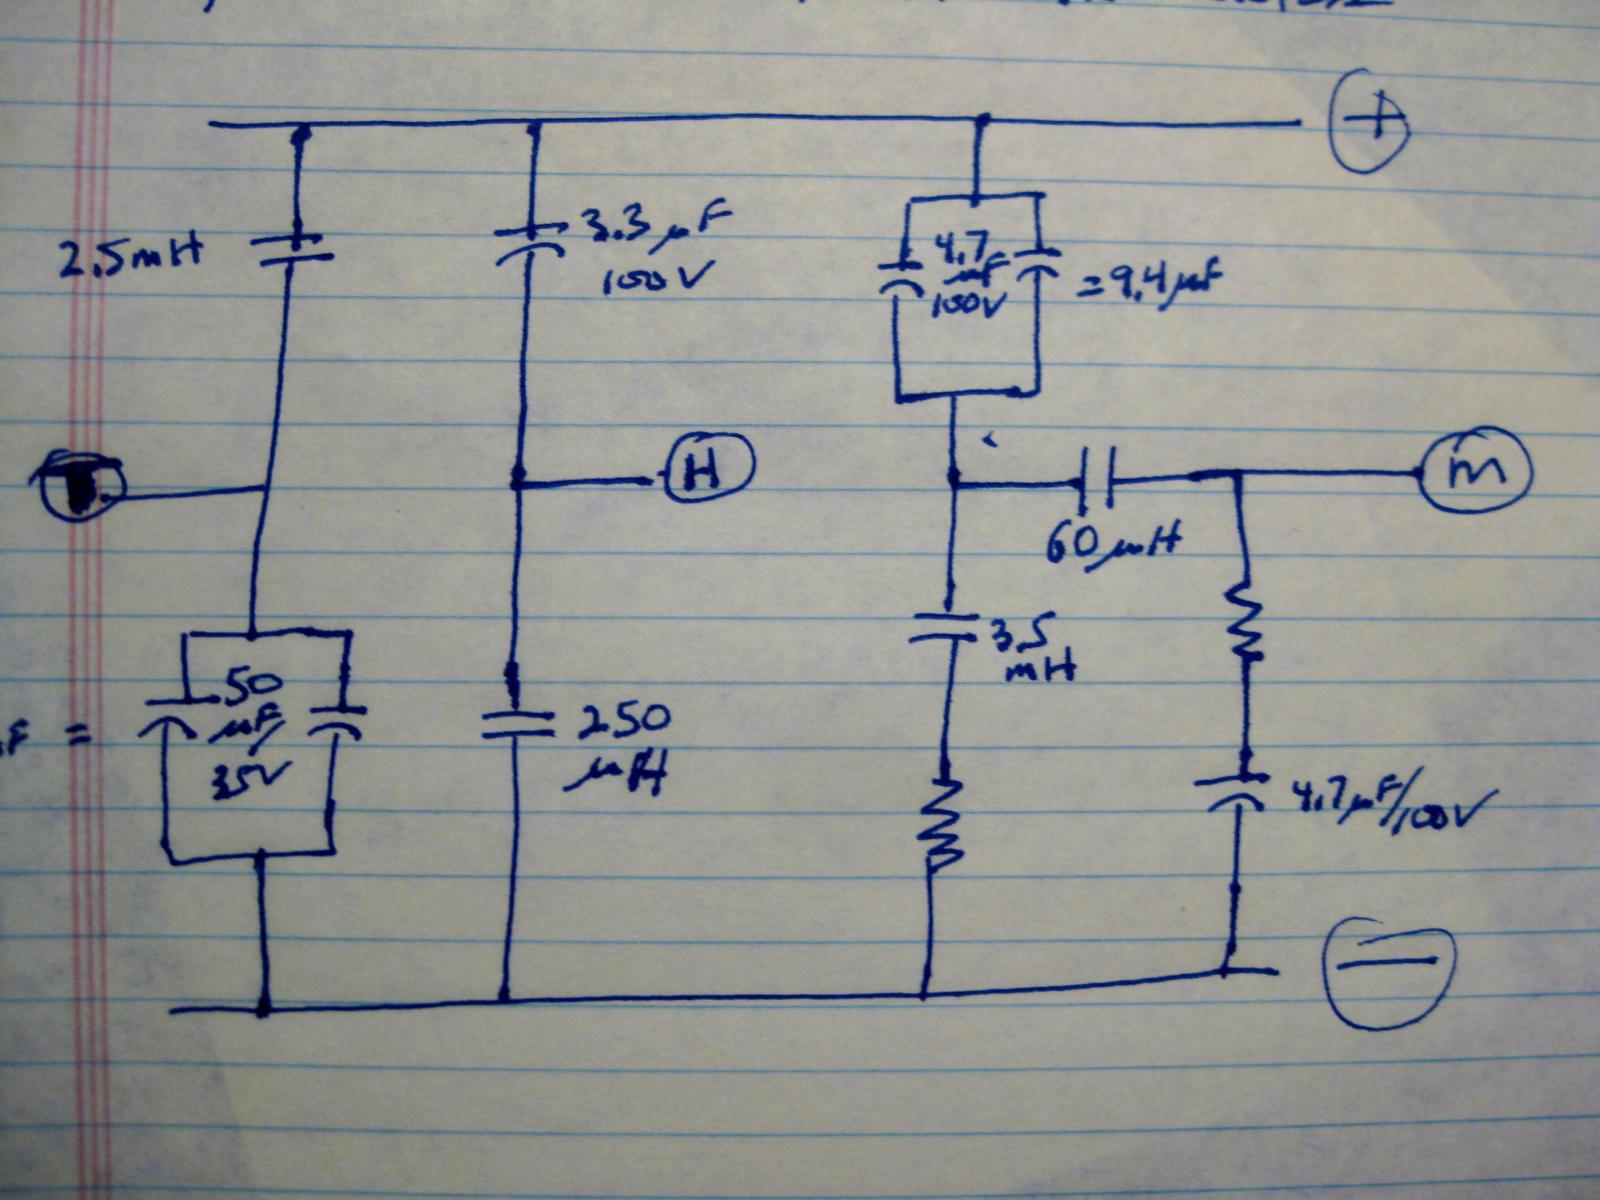 +
2.5mH
3.3 µF
100V
4.7
µF
100V
= 9.4 µF
H
m
60 µH
3.5
mH
50
µF
35V
F =
250
µH
4.7µF/100V
−